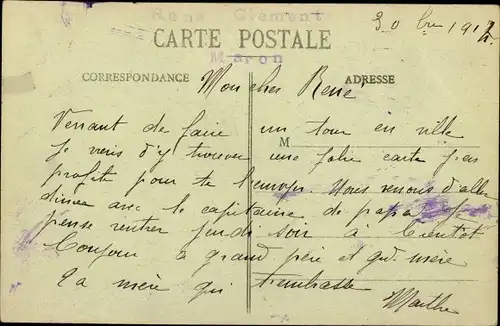 Rene Clement
CARTE POSTALE
Maron
30 bre 1912
CORRESPONDANCE
ADRESSE
M
Mon cher René
Venant de faire un tour en ville
je viens d'y trouver une jolie carte j'en
profite pour te l'envoyer. Nous venons d'aller
dîner avec le capitaine de papa. Je
pense rentrer jeudi soir à bientôt
Bonjour à grand père et gd. mère
Ta mère qui t'embrasse
Marthe